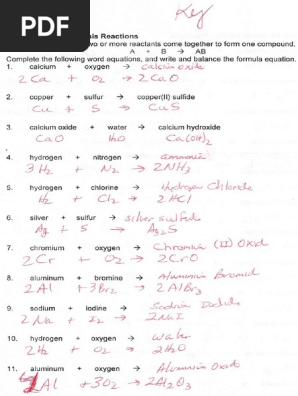 Key
PDF
is Reactions
wo or more reactants come together to form one compound.
A + B → AB
Complete the following word equations, and write and balance the formula equation.
1. calcium + oxygen → calcium oxide
2 Ca + O₂ → 2 CaO
2. copper + sulfur → copper(II) sulfide
Cu + S → CuS
3. calcium oxide + water → calcium hydroxide
CaO H₂O Ca(OH)₂
4. hydrogen + nitrogen → ammonia
3H₂ + N₂ → 2NH₃
5. hydrogen + chlorine → Hydrogen Chloride
H₂ + Cl₂ → 2 HCl
6. silver + sulfur → silver sulfide
Ag + S → Ag₂S
7. chromium + oxygen → Chromium (II) Oxid
2 Cr + O₂ → 2 CrO
8. aluminum + bromine → Aluminum Bromid
2 Al + 3Br₂ → 2 AlBr₃
9. sodium + iodine → Sodium
2 Na + I₂ → 2 NaI
10. hydrogen + oxygen → Water
2 H₂ + O₂ → 2H₂O
11. aluminum + oxygen → Aluminum Oxid
Al + 3O₂ → 2Al₂O₃